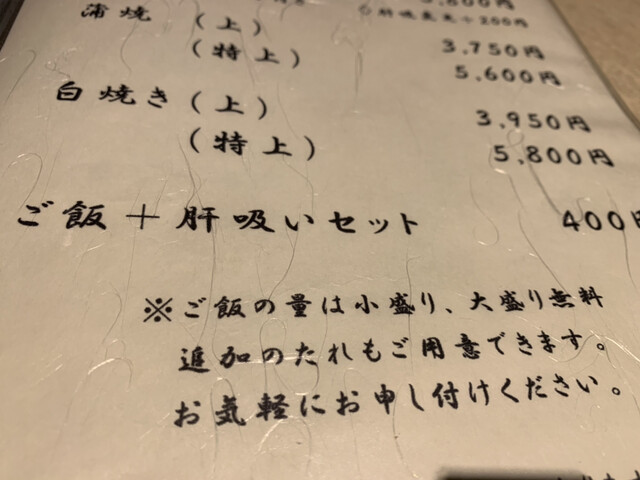 ◇肝吸変更+200円
蒲焼 (上) 3,750円
(特上) 5,600円
白焼き (上) 3,950円
(特上) 5,800円
ご飯+肝吸いセット 400円
※ご飯の量は小盛り、大盛り無料
追加のたれもご用意できます。
お気軽にお申し付けください。